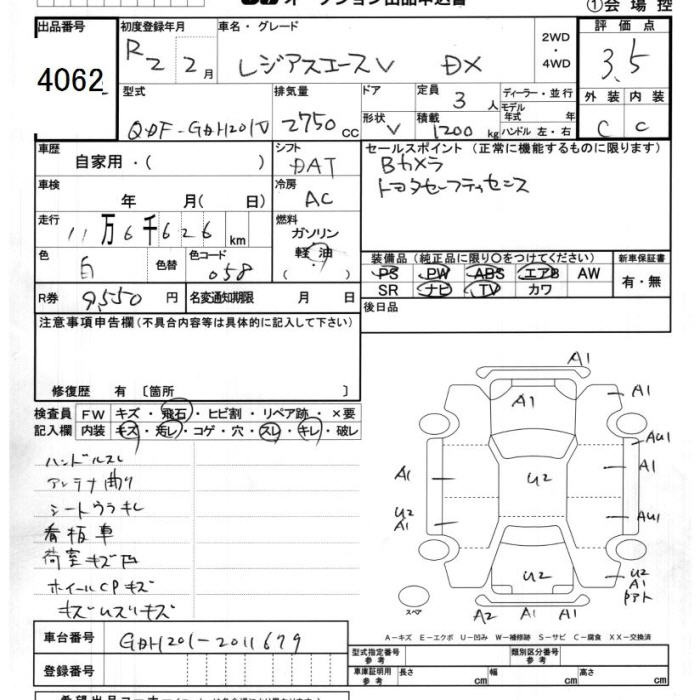 オークション出品申込書
①会場控
出品番号 初度登録年月 車名・グレード 2WD ・ 4WD 評価点
4062 R2 2月 レジアスエースV DX 3.5
型式 排気量 ドア 定員 3人 ディーラー・並行 外装 内装
QDF-GDH201V 2750cc 形状 V 積載 1200kg モデル年式 年 C C
ハンドル 左・右
車歴 自家用・( ) シフト DAT セールスポイント (正常に機能するものに限ります)
Bカメラ
車検 年 月( 日) 冷房 AC トヨタセーフティセンス
走行 11万6千626km 燃料 ガソリン 軽油 ( )
色 白 色替 色コード 058 装備品(純正品に限り〇をつけてください) 新車保証書
PS PW ABS エアB AW 有・無
R券 9,550円 名変通知期限 月 日 SR ナビ TV カワ
注意事項申告欄(不具合内容等は具体的に記入して下さい) 後日品
修復歴 有 〔箇所 〕
検査員 FW キズ・飛石・ヒビ割・リペア跡・×要
記入欄 内装 キズ・汚レ・コゲ・穴・スレ・キレ・破レ
ハンドルスレ
アンテナ曲り
シートウラキレ
看板車
荷室キズ凹
ホイールCPキズ
A1
A1 A1
AU1
A1 U2 A1
U2 A1 AU1
U2 U2 A1
スペア A2 A1
A-キズ E-エクボ U-凹み W-補修跡 S-サビ C-腐食 XX-交換済
車台番号 GDH201-2011679 型式指定番号 参考 類別区分番号 参考
登録番号 車庫証明用 参考 長さ cm 幅 cm 高さ cm